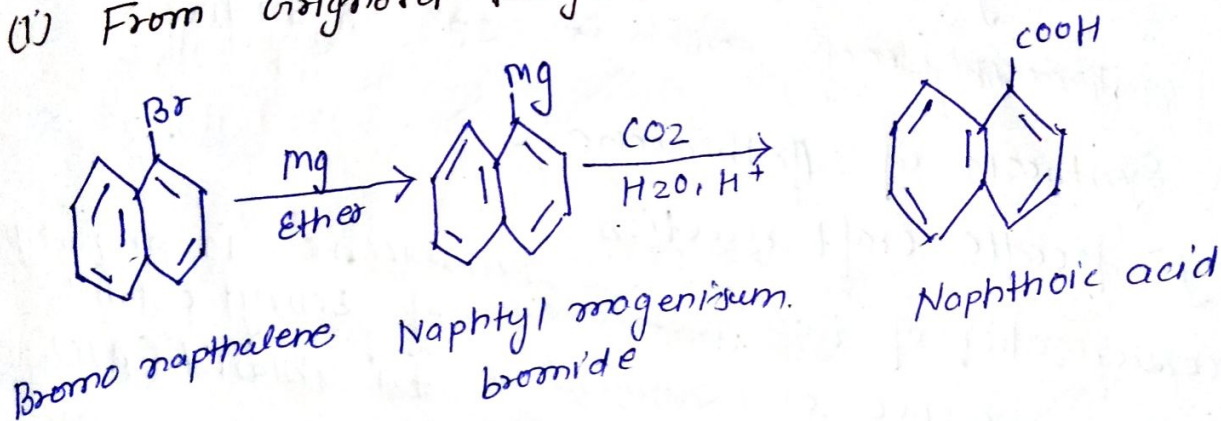 (i) From
Br
Mg
Ether
Mg
CO2
H2O, H+
COOH
Bromo napthalene
Naphtyl mogenisum.
bromide
Naphthoic acid